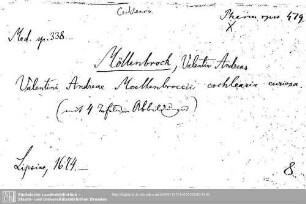 Cochlearia
Pharm. spec. 479.
X
Med. sp. 338.
Möllenbrock, Valentin Andreas
Valentini Andreae Moellenbroccii cochlearia curiosa.
(mit 4 Tafeln Abbildungen)
Lipsiae, 1674.
8.
Sächsische Landesbibliothek -
Staats- und Universitätsbibliothek Dresden